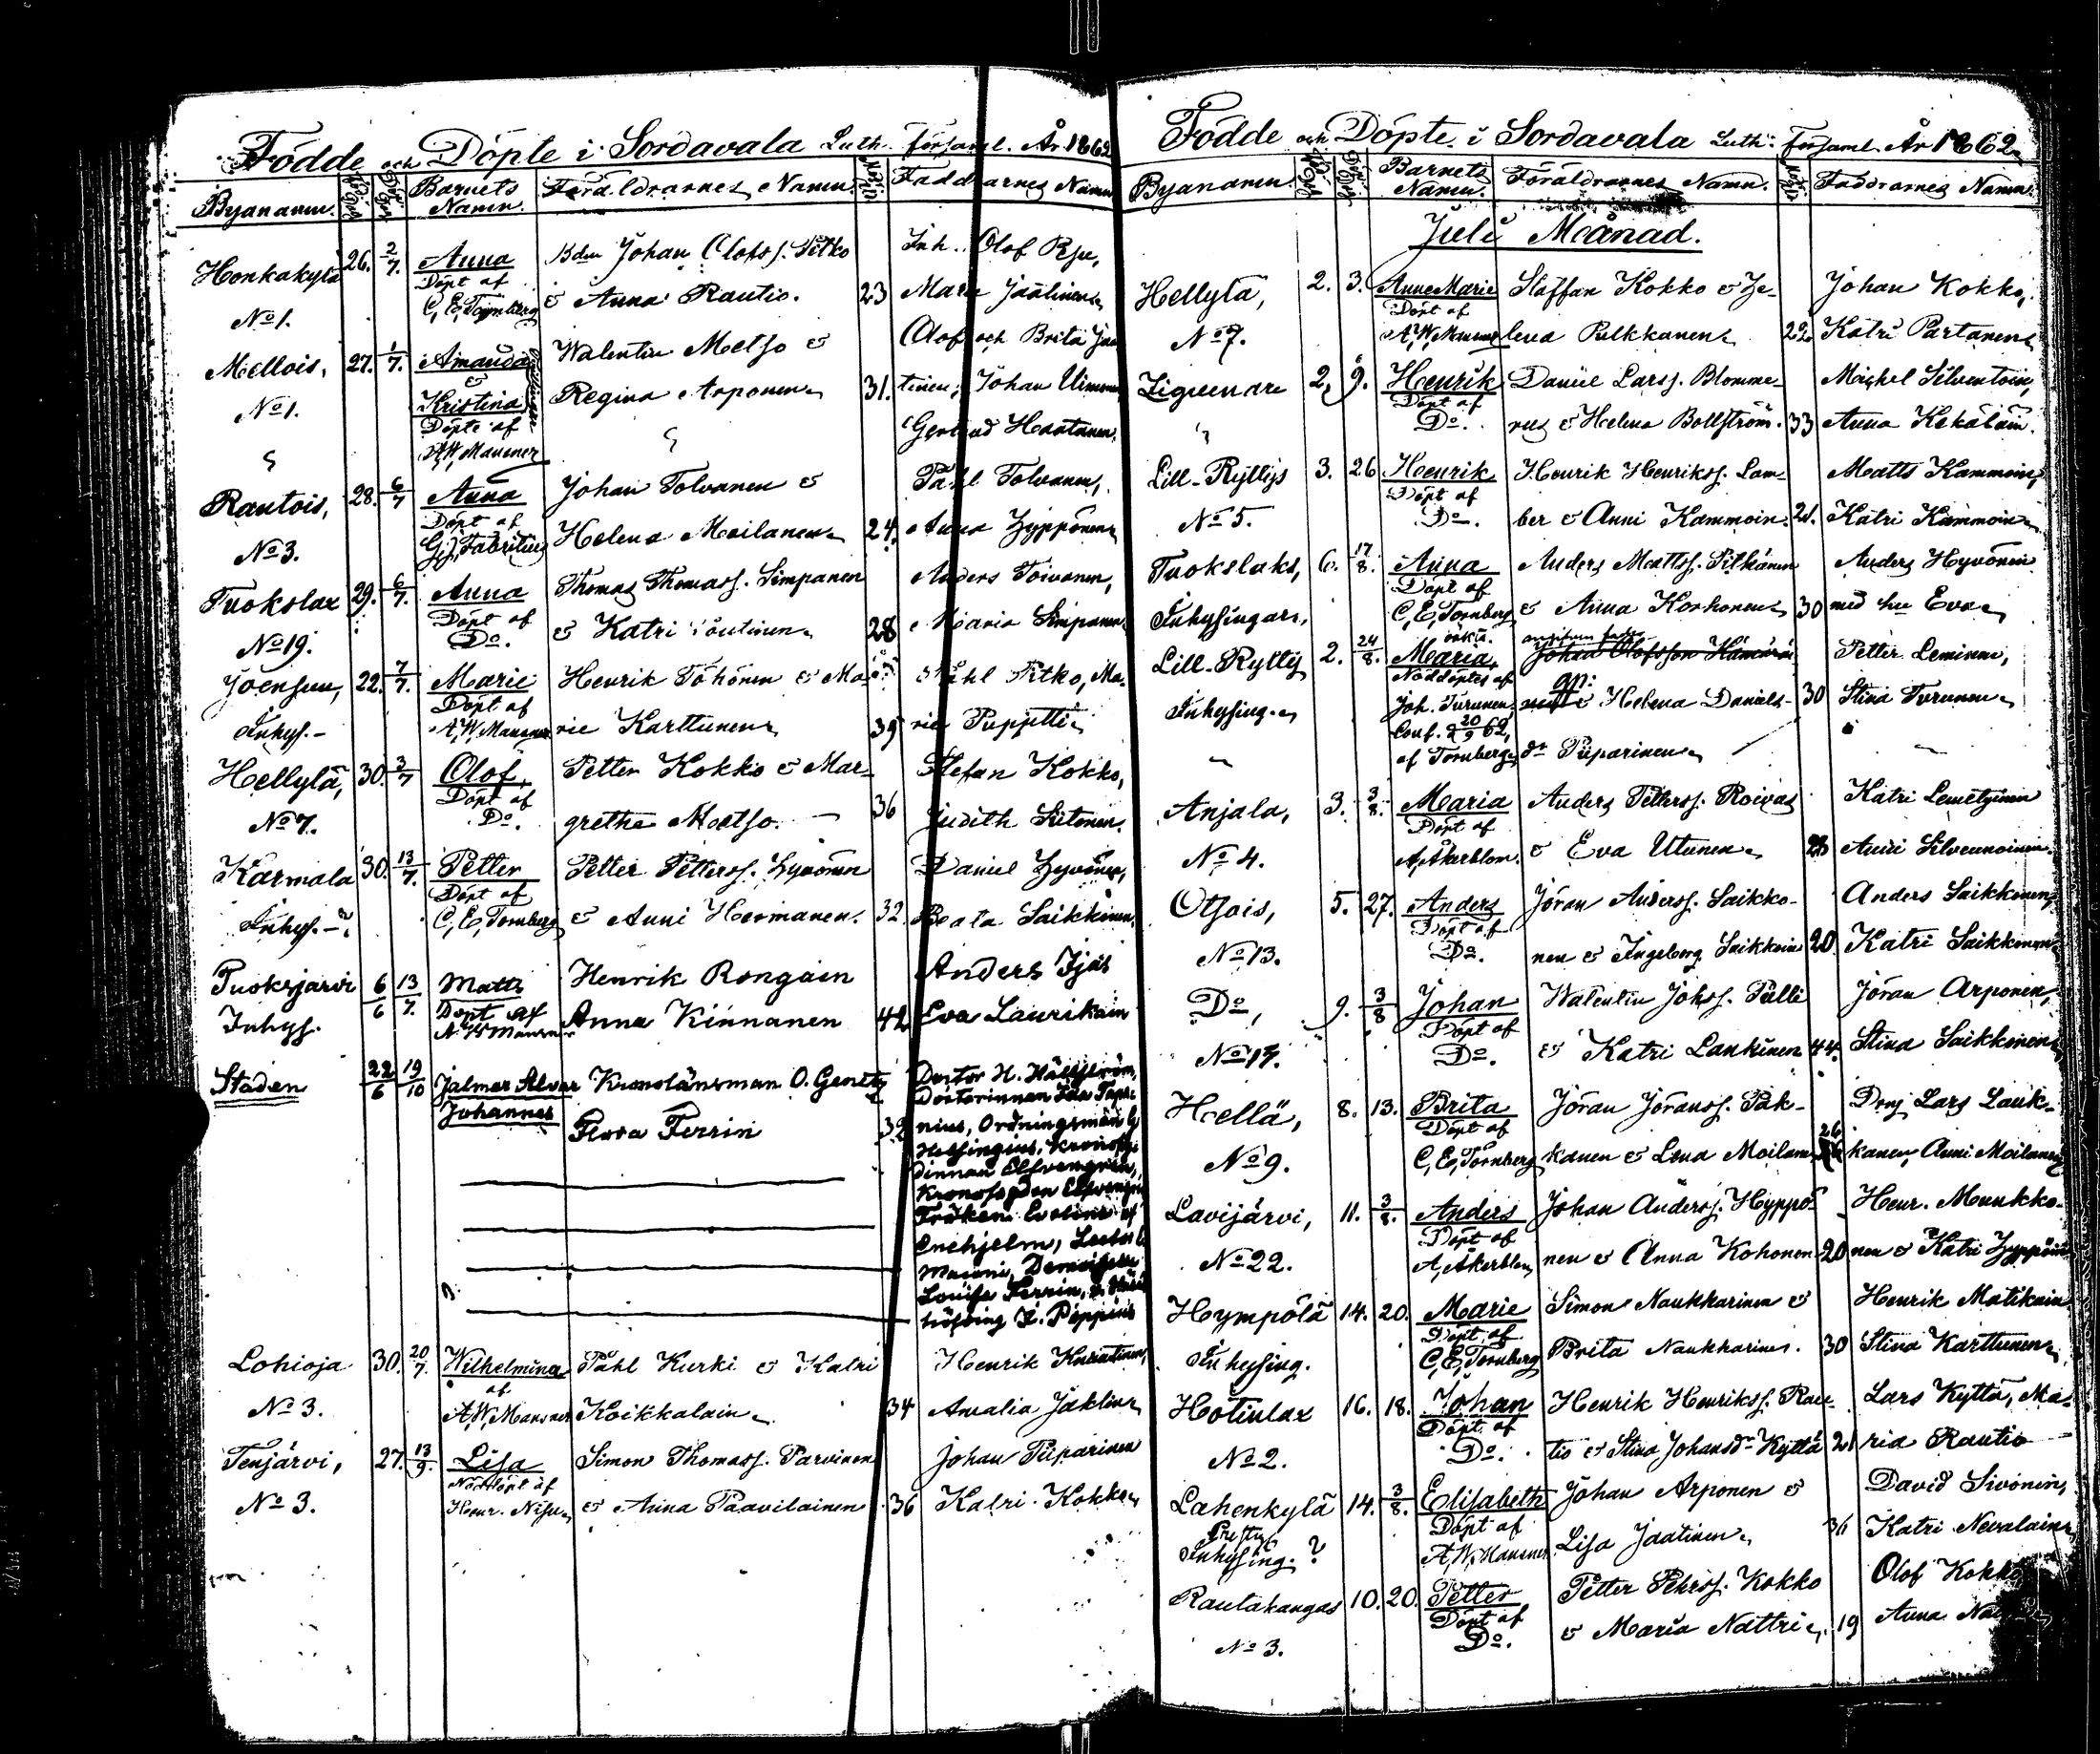 Födde och Döpte i Sordavala Luth. Församl. År 1862
Byanamn. Barnets Namn. Föräldrarnes Namn. Faddrarnes Namn
Honkakylä 26. 2/7. Anna Bdn Johan Olofss. Pitko Inh. Olof
Döpt af
C, E, Törnberg & Anna Rautio. 23 Maria Jaatinen
No 1.
Mellois, 27. 1/7. Amanda Walentin Metso & Olof och Brita Jaa
&
No 1. Kristina Regina Arponen 31. tinen, Johan
Döpte af Gertrud
A, W, Mansner
Rautois, 28. 6/7 Anna Johan Tolvanen & Påhl Tolvanen,
Döpt af
No 3. G, J, Fabritius Helena Moilanen 24. Anna Hyppönen
Tuokslax 29. 6/7. Anna Thomas Thomass. Simpanen Anders Toivonen,
Döpt af
No 19. Do. & Katri 28 Maria Simpanen
Joensuu, 22. 7/7. Marie Henrik Töhönen & Ma- Påhl Pitko, Ma-
Döpt af
Inhys.- A, W, Mansner rie Karttunen 39 ria
Hellylä, 30. 3/7 Olof Petter Kokko & Mar- Stefan Kokko,
Döpt af
No 7. Do. grethe Metso. 36 Judith Siitonen.
Karmala 30. 13/7. Petter Petter Petterss. Hyvönen Daniel Hyvönen,
Döpt af
Inhys.- C, E, Törnberg & Anni Hermanen. 32. Beata Saikkonen
Puoksjarvi 6/6 13/7. Matts Henrik Rongain Anders Ijäs
Inhys. Döpt af Anna Kinnanen 42 Eva Laurikain
A W Mansner
Staden 22/6 19/10 Jalmar Alvar Kronolänsman O. Genetz Doctor H. Hällström,
Johannes Flora Ferrin 32 Doctorinnan Ida
nius, Ordningsman G
Helsingius,
Fröken Evelina af
Enehjelm,
Louise Ferrin,
Lohioja 30. 20/7. Wilhelmina Påhl Kurki & Katri Henrik
af
No 3. A, W, Mansner Koikkalain 34 Amalia Jäklin
Tenjärvi, 27. 13/9. Lisa Simon Thomass. Parvinen Johan Piiparinen
Nöddöpt af
No 3. & Anna Paavilainen 36 Katri Kokko
Födde och Döpte i Sordavala Luth. Församl. År 1862
Byanamn. Barnets Namn. Föräldrarnes Namn. Faddrarnes Namn.
Juli Månad.
Hellylä, 2. 3. Anna Marie Staffan Kokko & He- Johan Kokko,
Döpt af
No 7. A, W, Mansner lena Pulkkanen 22. Katri Partanen
2, 9. Henrik Daniel Larss. Blomme- Michel Silventoin,
Döpt af
Do. rus & Helena Bollström. 33 Anna Kekäläin.
Lill-Ryttys 3. 26 Henrik Henrik Henrikss. Lam- Matts Kammoin,
Döpt af
No 5. Do. ber & Anni Kammoin. 21. Katri Kammoin
Tuokslaks, 6. 17/8. Anna Anders Mattss. Pitkänen Anders Hyvönen
Döpt af
Inhysingar, C, E, Törnberg & Anna Korhonen 30 med hu Eva
oäkta.
Lill-Ryttys 2. 24/8. Maria, Johan Olofsson Petter Leminen,
Nöddöptes af
Inhysing. Joh. Turunen, Helena Daniels- 30 Stina Turunen
Conf. d 20/9 62,
af Törnberg dr Piiparinen
Anjala, 3. 3/8. Maria Anders Petterss. Roivas Katri
Döpt af
No 4. A, Åkerblom. & Eva Utunen Anni Silvennoinen.
Otsois, 5. 27. Anders Jöran Anderss. Saikko- Anders Saikkonen,
Döpt af
No 13. Do. nen & Ingeborg Saikkoin 20. Katri Saikkonen
Do, 9. 3/8 Johan Walentin Johss. Pulli Jöran Arponen,
Döpt af
Do. & Katri Lankinen 44. Stina Saikkonen
Hellä, 8. 13. Brita Jöran Jöranss. Pak- Drng Lars Lauk-
Döpt af 26
No 9. C, E, Törnberg kanen & Lena Moilanen kanen, Anni Moilanen
Lavijärvi, 11. 3/8. Anders Johan Anderss. Hyppö- Henr. Munkko-
Döpt af
No 22. A, Åkerblom nen & Anna Kohonen 20 nen & Katri Hyppönen
Hympölä 14. 20. Marie Simon Naukkarinen & Henrik Matikain
Döpt af
Inhysing. C, E, Törnberg Brita Naukkarinen. 30 Stina Karttunen
Hotinlax 16. 18. Johan Henrik Henrikss. Rau- Lars Kyttä, Ma-
Döpt af
No 2. Do. tio & Stina Johansdr Kyttä 21 ria Rautio
Lahenkylä 14. 3/8. Elisabeth Johan Arponen & David Sivonen,
Döpt af
Inhysing. ? A, W, Mansner. Lisa Jaatinen 36 Katri Nevalain
Rautakangas 10. 20. Petter Petter Pehrss. Kokko Olof Kokko
Döpt af
Do. & Maria Nättri 19 Anna
No 3.